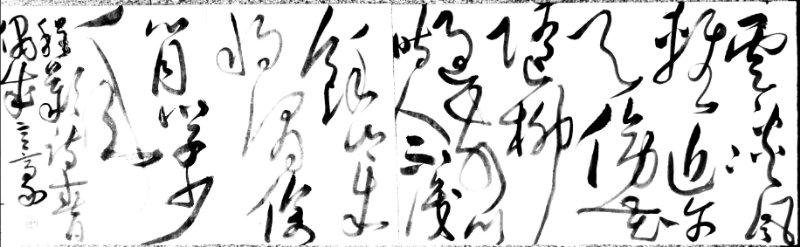 雲淡風
輕近午
天傍花
隨柳
過前川
時人不識
餘心樂
將謂偷
閒學少
年
程顥詩春日
偶成